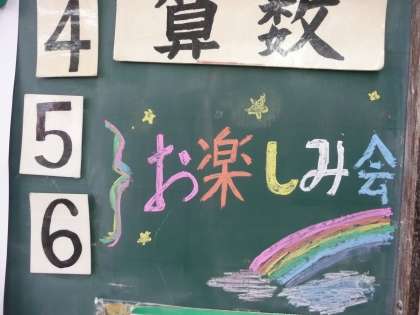 4 算数
5 お楽しみ会
6